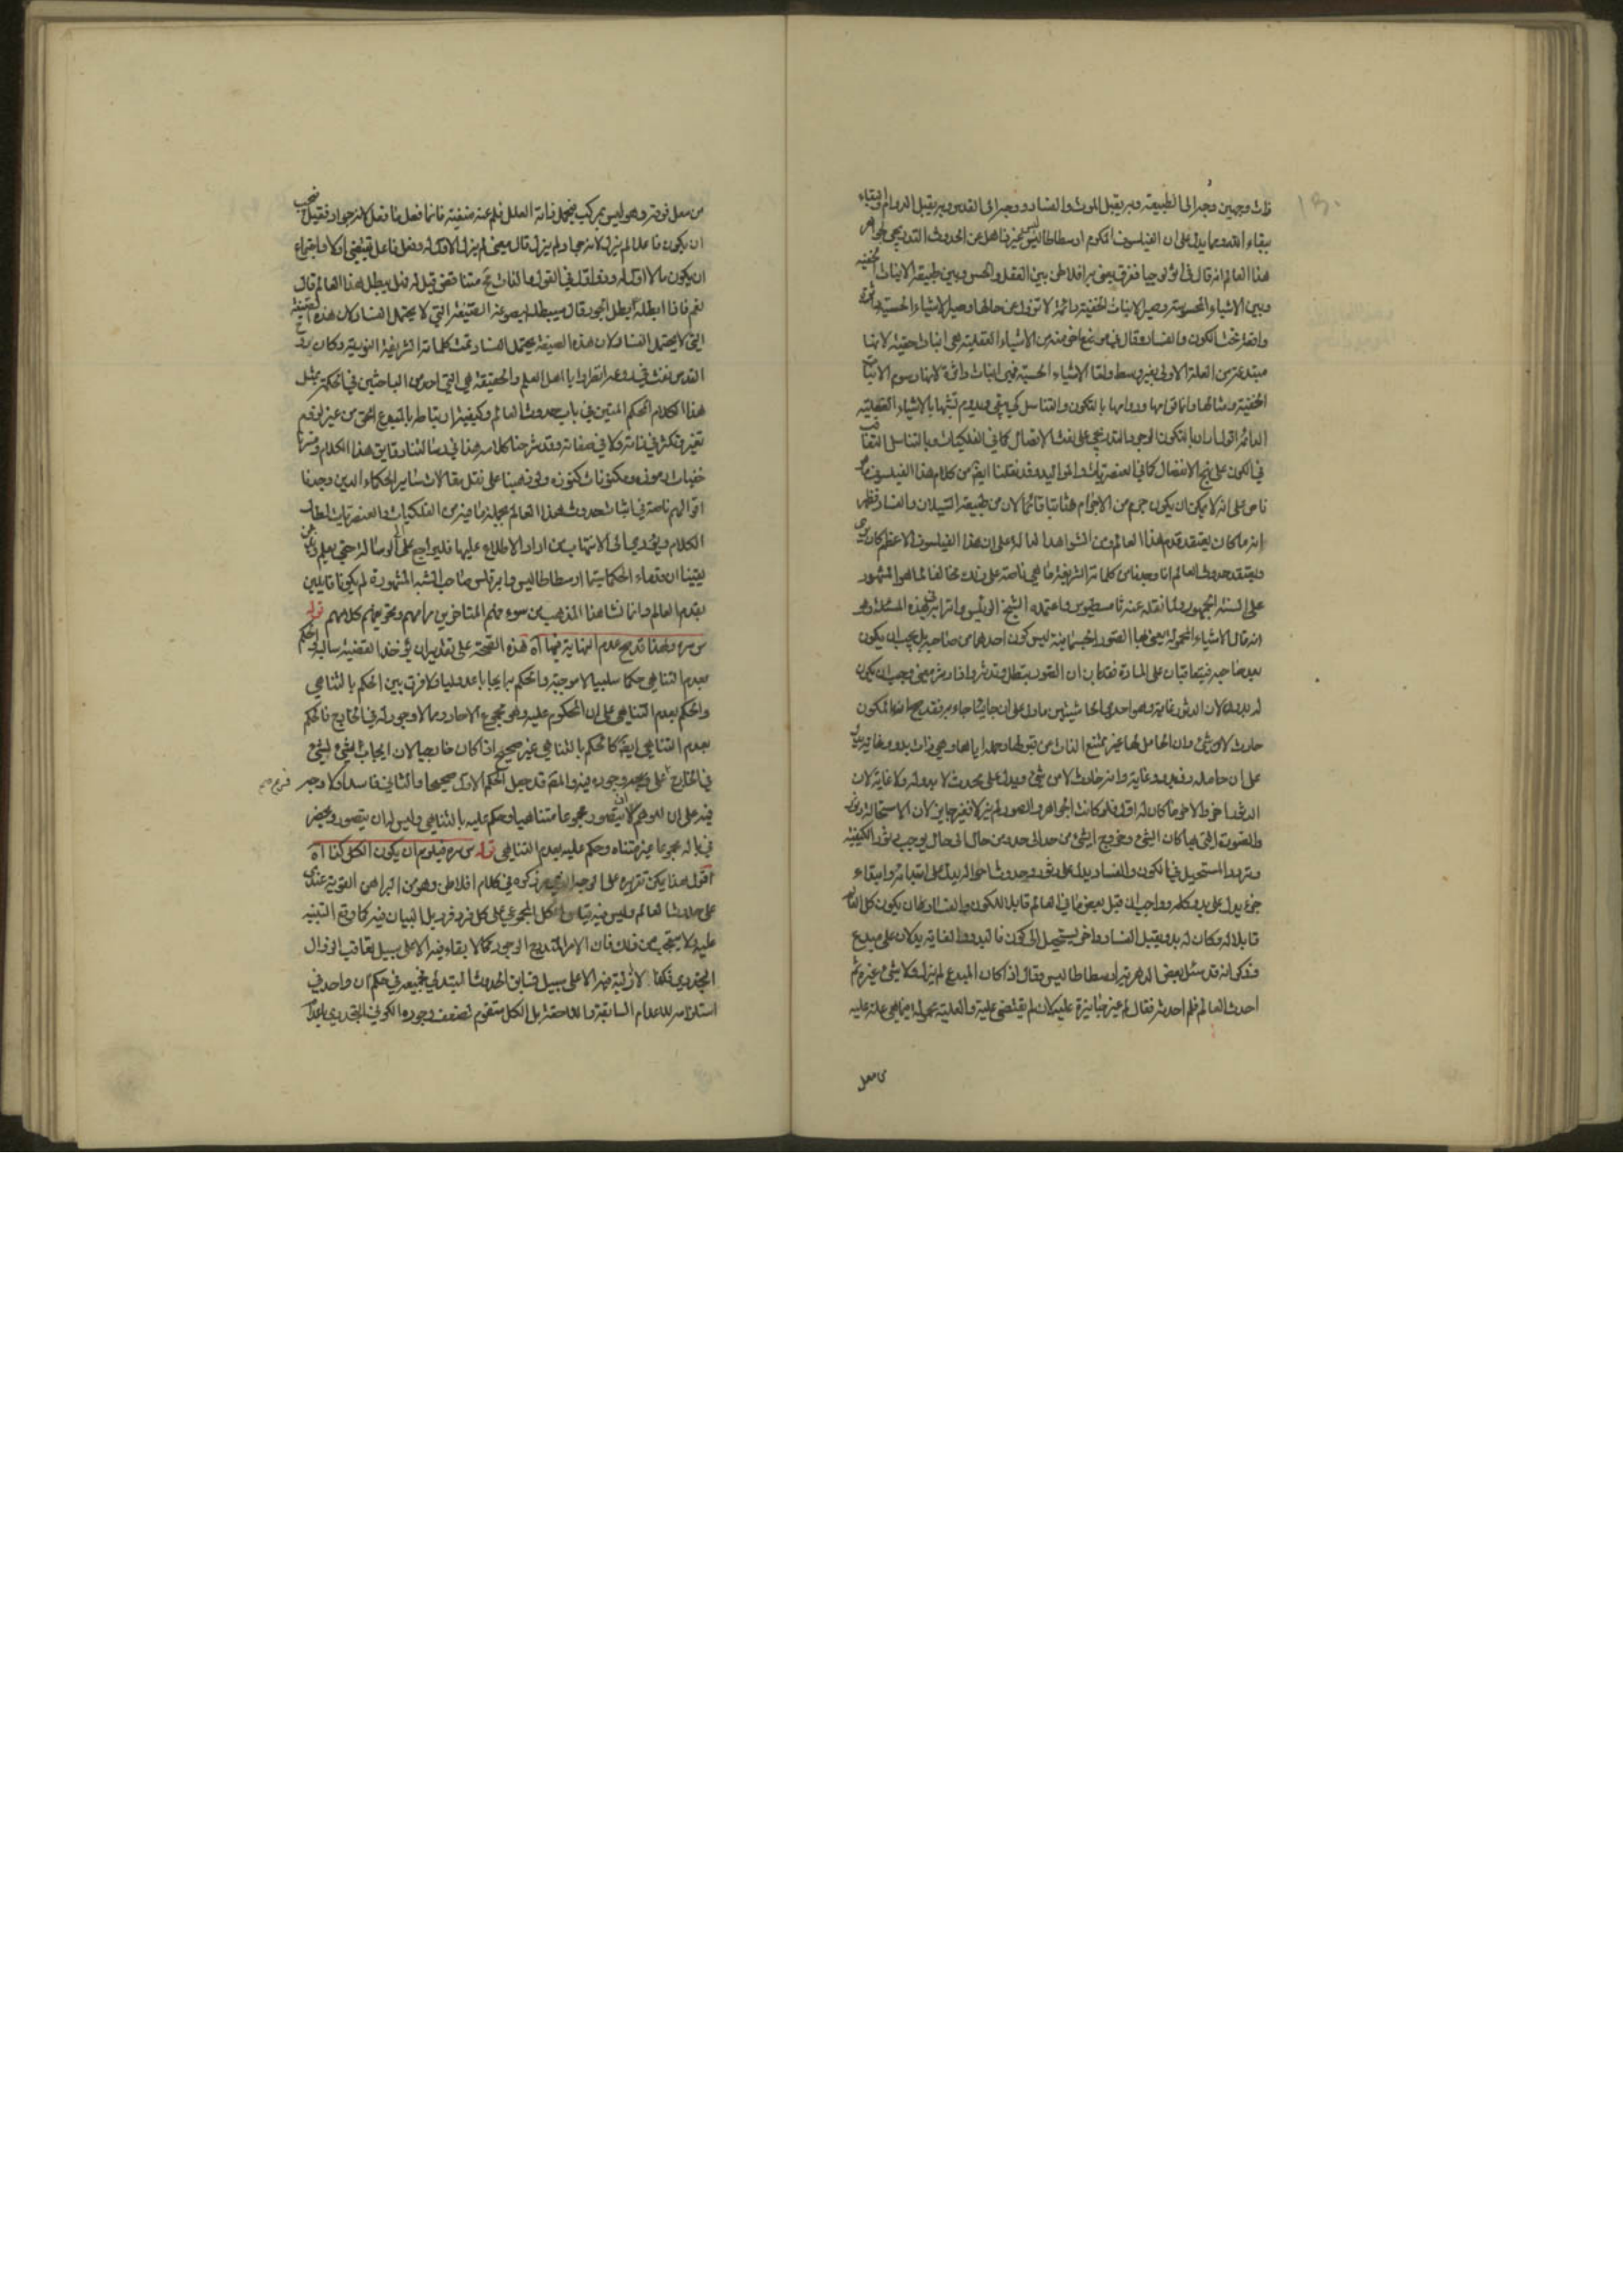 ذات وجهين وجه الى الطبيعة وبه يقبل الموت والفساد ووجه الى القدس وبه يقبل الدوام والبقاء
ببقاء الله ومما يدل على ان الفيلسوف المكرم ارسطاطاليس غير ذاهل عن الحدوث التدريجي
هذا العالم انه قال في اثولوجيا فرق يعني به افلاطن بين العقل والحس وبين طبيعة الانيات الخفية
وبين الاشياء المحسوسة وصير الانيات الخفية دائمة لا تزول عن حالها وصير الاشياء الحسية داثرة
واقعة تحت الكون والفساد وقال في موضع اخر منه ان الاشياء العقلية هي انيات حقية لانها
مبتدعة من العلة الاولى بغير وسط واما الاشياء الحسية فهي انيات داثرة لانها رسوم الانيات
الحقية ومثالها وانما قوامها ودوامها بالتكون والتناسل كي يبقى ويدوم تشبها بالاشياء العقلية
الدائمة اقول اراد بالتكون الوجود التدريجي على نعت الاتصال كما في الفلكيات وبالتناسل التعاقب
في الكون على نهج الانفصال كما في العنصريات والمواليد وقد نقلنا ايضا من كلام هذا الفيلسوف
ناص على انه لا يمكن ان يكون جرم من الاجرام ثابتا قائما لان من طبيعته السيلان والفساد فظهر
انه ما كان يعتقد قدم هذا العالم ومن الشواهد الدالة على ان هذا الفيلسوف الاعظم كان يرى
ويعتقد حدوث العالم انا وجدنا من كلماته الشريفة ما هي ناصة على ذلك مخالفا لما هو المشهور
على السنة الجمهور ولما نقله عنه ثامسطيوس واعتمده الشيخ الرئيس واترابه في هذه المسئلة وهو
انه قال الاشياء المحمولة يعني بها الصور الجسمانية ليس كون احدهما من صاحبه بل يجب ان يكون
بعد صاحبه فيتعاقبان على المادة فقد بان ان الصور تبطل وتدثر واذا دثر معنى وجب ان يكون
له بدو لان الدثور غاية وهو احدى الحاشيتين ما دل على ان جائيا جاء به فقد صح ان المكون
حادث لا من شئ وان الحامل لها غير ممتنع الذات من قبولها وحمله اياها وهي ذات بدو وغاية يدل
على ان حامله ذو بدو وغاية وانه حادث لا من شئ ويدل على محدث لا بدو له ولا غاية لان
الدثور اخر والاخر ما كان له اول فلو كانت الجواهر والصور لم يزالا فغير جايز لان الاستحالة دثور
والصورة التي بها كان الشئ وخروج الشئ من حد الى حد ومن حال الى حال يوجب دثور الكيفية
وتردد المستحيل في الكون والفساد يدل على دثوره وحدوث احواله يدل على ابتدائه وابتداء
جزئه يدل على بدو كله وواجب ان قبل بعض ما في العالم قابلا للكون والفساد ان يكون كل العالم
قابلا له وكان له بدو يقبل الفساد واخر يستحيل الى كون فالبدو والغاية يدلان على مبدع
وقد كي انه قد سئل بعض الدهرية ارسطاطاليس وقال اذا كان المبدع لم يزل ولا شئ غيره ثم
احدث العالم فلم احدثه فقال لم غير جايزة عليه لان لم يقتضي علة والعلة محمولة فيما هي علة عليه
من معل
من معل فوقه وهو ليس بمركب فتحمل ذاته العلل فلم عنه منفية فانما فعل ما فعل لانه جواد فقيل فيجب
ان يكون فاعلا لم يزل لانه جواد لم يزل قال معنى لم يزل لا اول له وفعل فاعل يقتضي اولا واجتماع
ان يكون ما لا اول له وذو اول في القول والذات مح متناقض قيل له فهل يبطل هذا العالم قال
نعم فاذا ابطله بطل الجود قال سيبطله ليصوغه الصيغة التي لا يحتمل الفساد لان هذه الصيغة
التي لا يحتمل الفساد لان هذه الصيغة يحتمل الفساد تمت كلماته الشريفة النورية وكان روح
القدس نفث في روعه انظروا يا اهل العلم والحقيقة هل اتى احد من الباحثين في الحكمة بمثل
هذا الكلام المحكم المتين في باب حدوث العالم وكيفية ارتباطه بالمبدع الحق من غير لزوم
تغير وتكثر في ذاته ولا في صفاته وقد شرحنا كلامه هذا في رسالتنا دقايق هذا الكلام وشرحنا
خفيات رموزه ومكنونات كنوزه ولو ذهبنا على نقل مقالات ساير الحكماء الذين وجدنا
اقوالهم ناصة في اثبات حدوث هذا العالم بجملة ما فيه من الفلكيات والعنصريات لطال
الكلام ويؤدي الى الاسهاب من اراد الاطلاع عليها فليراجع الى الرسالة حتى يعلم
يقينا ان قدماء الحكماء سيما ارسطاطاليس وابرقلس صاحب الشبه المشهورة لم يكونا قائلين
بقدم العالم وانما نشا هذا المذهب من سوء فهم المتاخرين مرامهم وتحريفهم كلامهم قوله
س سره ولهذا قد يصح عدم النهاية فيها آه هذه الصحة على تقدير ان يؤخذ القضية سالبة الحكم
بعدم التناهي حكما سلبيا لا موجبة والحكم بايجابا عدوليا ولا فرق بين الحكم بالتناهي
والحكم بعدم التناهي على ان المحكوم عليه وهو مجموع الاحاد مما لا وجود له في الخارج فالحكم
بعدم التناهي ايضا كالحكم بالتناهي غير صحيح اذا كان خارجيا لان ايجاب الشئ لشئ
في الخارج فرع على وجوده فيه والمص قد جعل الحكم الاول صحيحا والثاني فاسدا ولا وجه
فيه على ان للوهم ان يتصور مجموعا متناهيا وحكم عليه بالتناهي وليس له ان يتصور ويحضر
في باله مجموعا غير متناه وحكم عليه بعدم التناهي قوله س سره فيلزم ان يكون الكل كذا آه
اقول هذا يمكن تقريره على الوجه الذي مر ذكره في كلام افلاطن وهو من البراهين القوية عندي
على حدوث العالم وليس فيه قياس الكل المجموعي على كل فرد فرد بل البيان فيه كما وقع التنبيه
عليه ولا يستعجب من ذلك فان الامر المتدرج الوجود كما لا بقاء فيه الا على سبيل تعاقب الزوال
التجددي فكذا لا ازلية فيه الا على سبيل تسابق الحدوث المبتدئي فجميعه في حكم ان واحد في
استلزامه للاعدام السابقة واللاحقة بل الكل متقوم لضعف وجوده الكوني التجددي باعدام